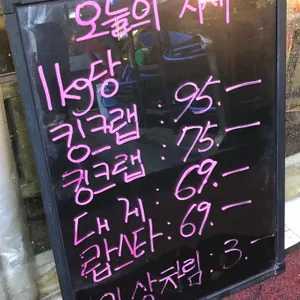 오늘의 시세
1kg당
킹크랩 : 95.—
킹크랩 : 75.—
대게 : 69.—
랍스타 : 69.—
상차림 : 3.—